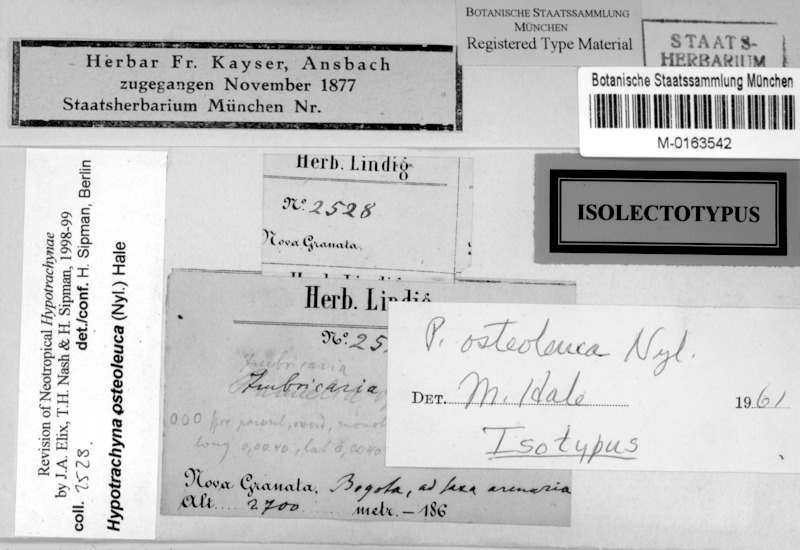 BOTANISCHE STAATSSAMMLUNG
MÜNCHEN
Registered Type Material
STAATS-
HERBARIUM
Herbar Fr. Kayser, Ansbach
zugegangen November 1877
Staatsherbarium München Nr.
Botanische Staatssammlung München
M-0163542
ISOLECTOTYPUS
Revision of Neotropical Hypotrachynae
by J.A. Elix, T.H. Nash & H. Sipman, 1998-99
coll. 2528. det./conf. H. Sipman, Berlin
Hypotrachyna osteoleuca (Nyl.) Hale
Herb. Lindig
No. 2528
Nova Granata,
Herb. Lindig
No. 25
Imbricaria
Imbricaria
long 0,0040, lat 0,0040
Nova Granata, Bogota, ad saxa arenaria
Alt. 2700 metr. – 186
P. osteoleuca Nyl.
DET. M. Hale 1961
Isotypus